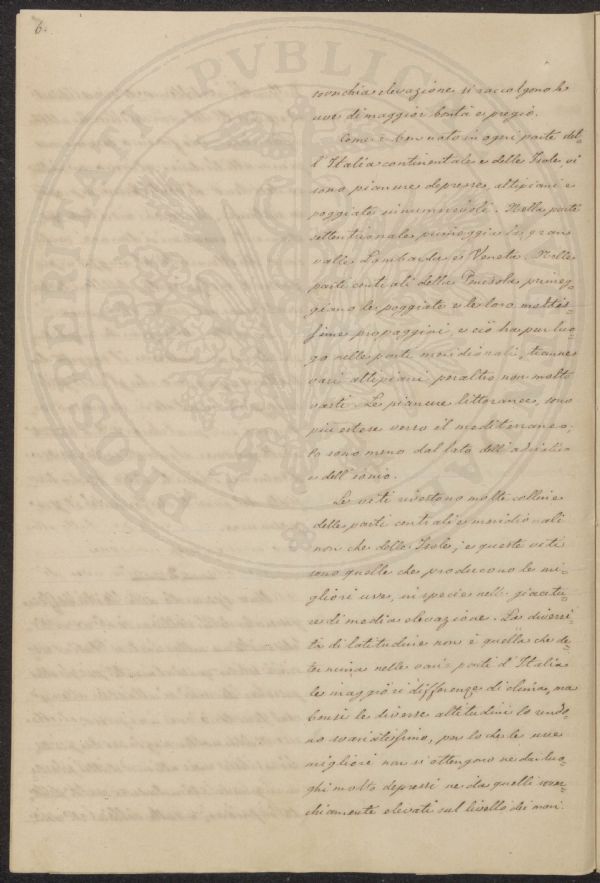 6.
PROSPERITATI PVBLICAE AV
soverchia elevazione si raccolgono le
uve di maggior bontà e pregio.
Come è ben noto in ogni parte del=
l'Italia continentale e delle Isole vi
sono pianure depresse, altipiani e
poggiate innumerevoli. Nella parte
settentrionale primeggia la gran
valle Lombarda e Veneta. Nelle
parti centrali della Penisola primeg=
giano le poggiate e le loro moltis=
sime propaggini, e ciò ha pur luo=
go nelle parti meridionali, tranne
vari altipiani peraltro non molto
vasti. Le pianure littoranee, sono
più estese verso il mediterraneo,
lo sono meno dal lato dell'adriatico
e dell'ionio.
Le viti rivestono molte colline
delle parti centrali e meridionali
non che delle Isole; e queste viti
sono quelle che producono le mi=
gliori uve, in specie nelle giacitu=
re di media elevazione. La diversi=
tà di latitudine non è quella che de=
termina nelle varie parti d'Italia
le maggiori differenze di clima, ma
bensì le diverse altitudini lo rendo=
no svariatissimo, per lo che le uve
migliori non si ottengono nè da luo=
ghi molto depressi nè da quelli sover=
chiamente elevati sul livello dei mari.